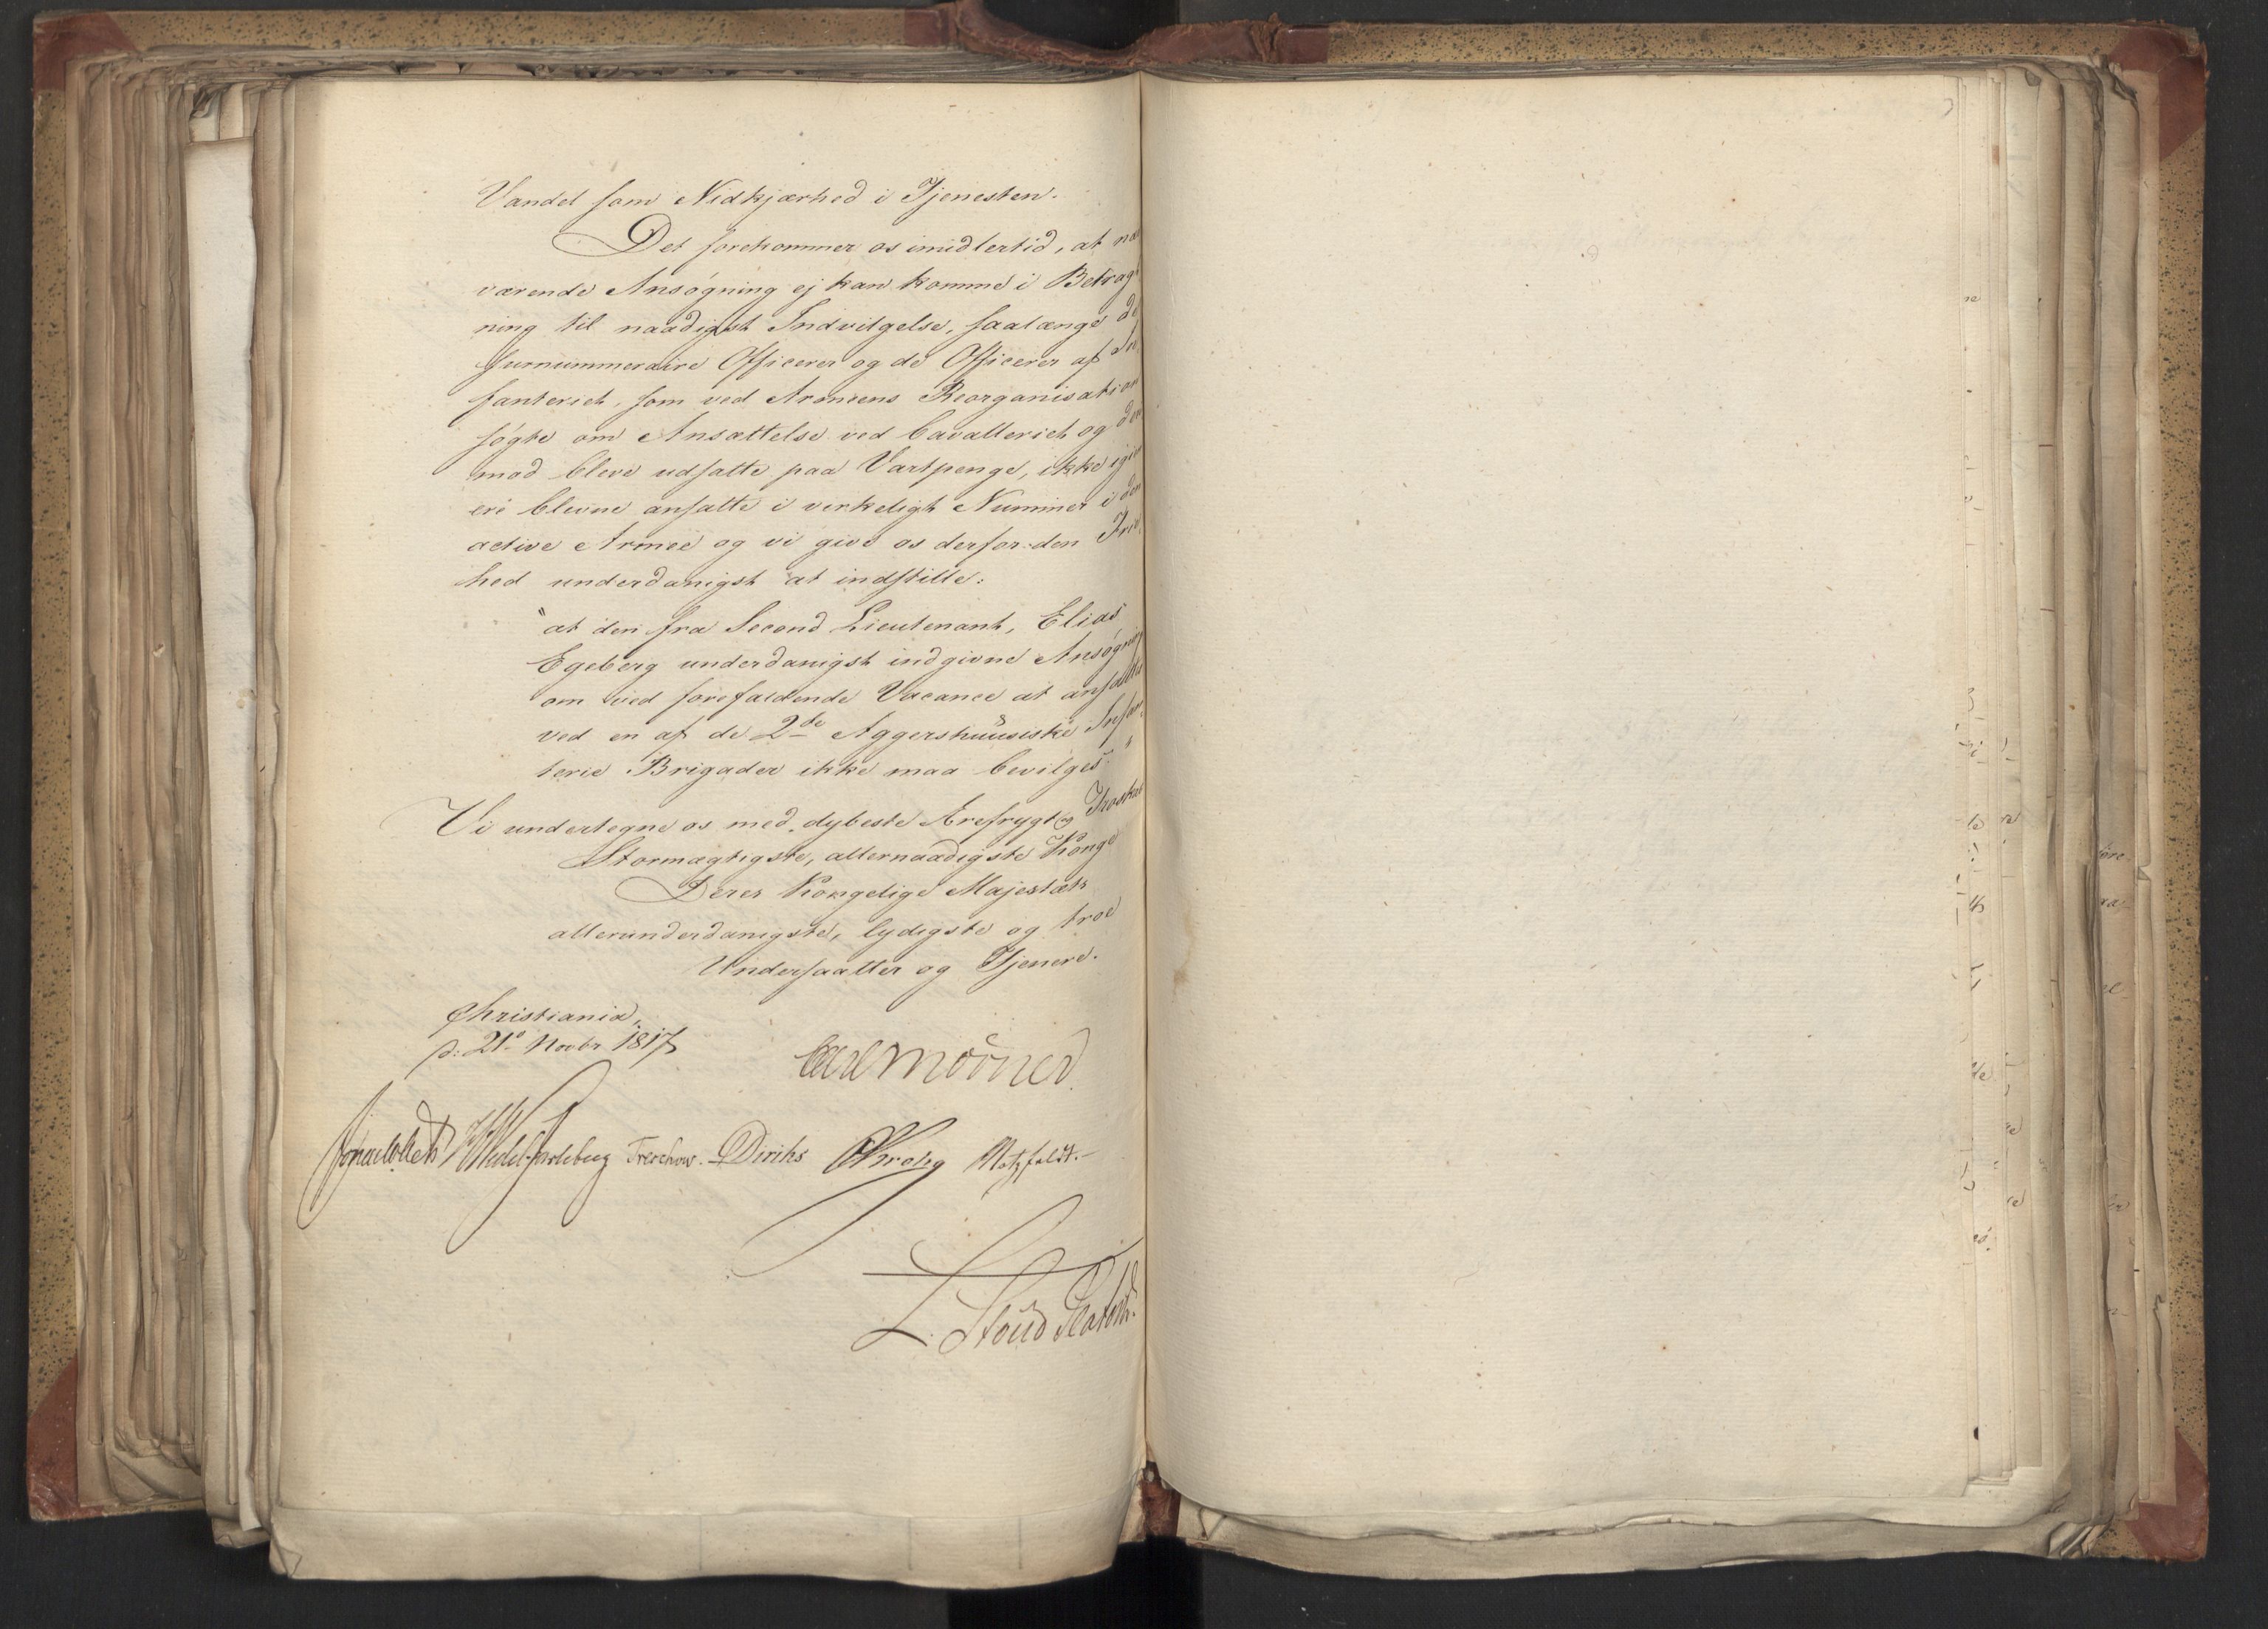 Vandel som Nidkjærhed i Tjenesten.
Det forekommer os imidlertid, at nær
værende Ansøgning ej kan komme i Betragt
ning til naadigst Indvilgelse, saalænge de
surnummeraire Officerer og de Officerer af In
fanteriet, som ved Armeens Reorganisation
søgte om Ansættelse ved Cavalleriet og der
mod bleve udsatte paa Vartpenge, ikke igien
ere blevne ansatte i virkeligt Nummer i den
active Armee og vi give os derfor den Fri
hed underdanigst at indstille:
"at den fra Second Lieutenant, Elias
Egeberg underdanigst indgivne Ansøgning
om ved forefaldende Vacance at ansættes
ved en af de 2de Aggershuusiske Infan
terie Brigader ikke maa bevilges"
Vi undertegne os med dybeste Ærefrygt og Troskab
Stormægtigste, allernaadigste Konge
Deres Kongelige Majestæts
allerunderdanigste, lydigste og troe
Undersaatter og Tjenere.
Christiania,
d: 21e Novbr 1817
Carl Mörner
Jonas Collett HWedel Jarlsberg Treschow. Diriks CKrohg Motzfeldt.
L. Stoud Platou